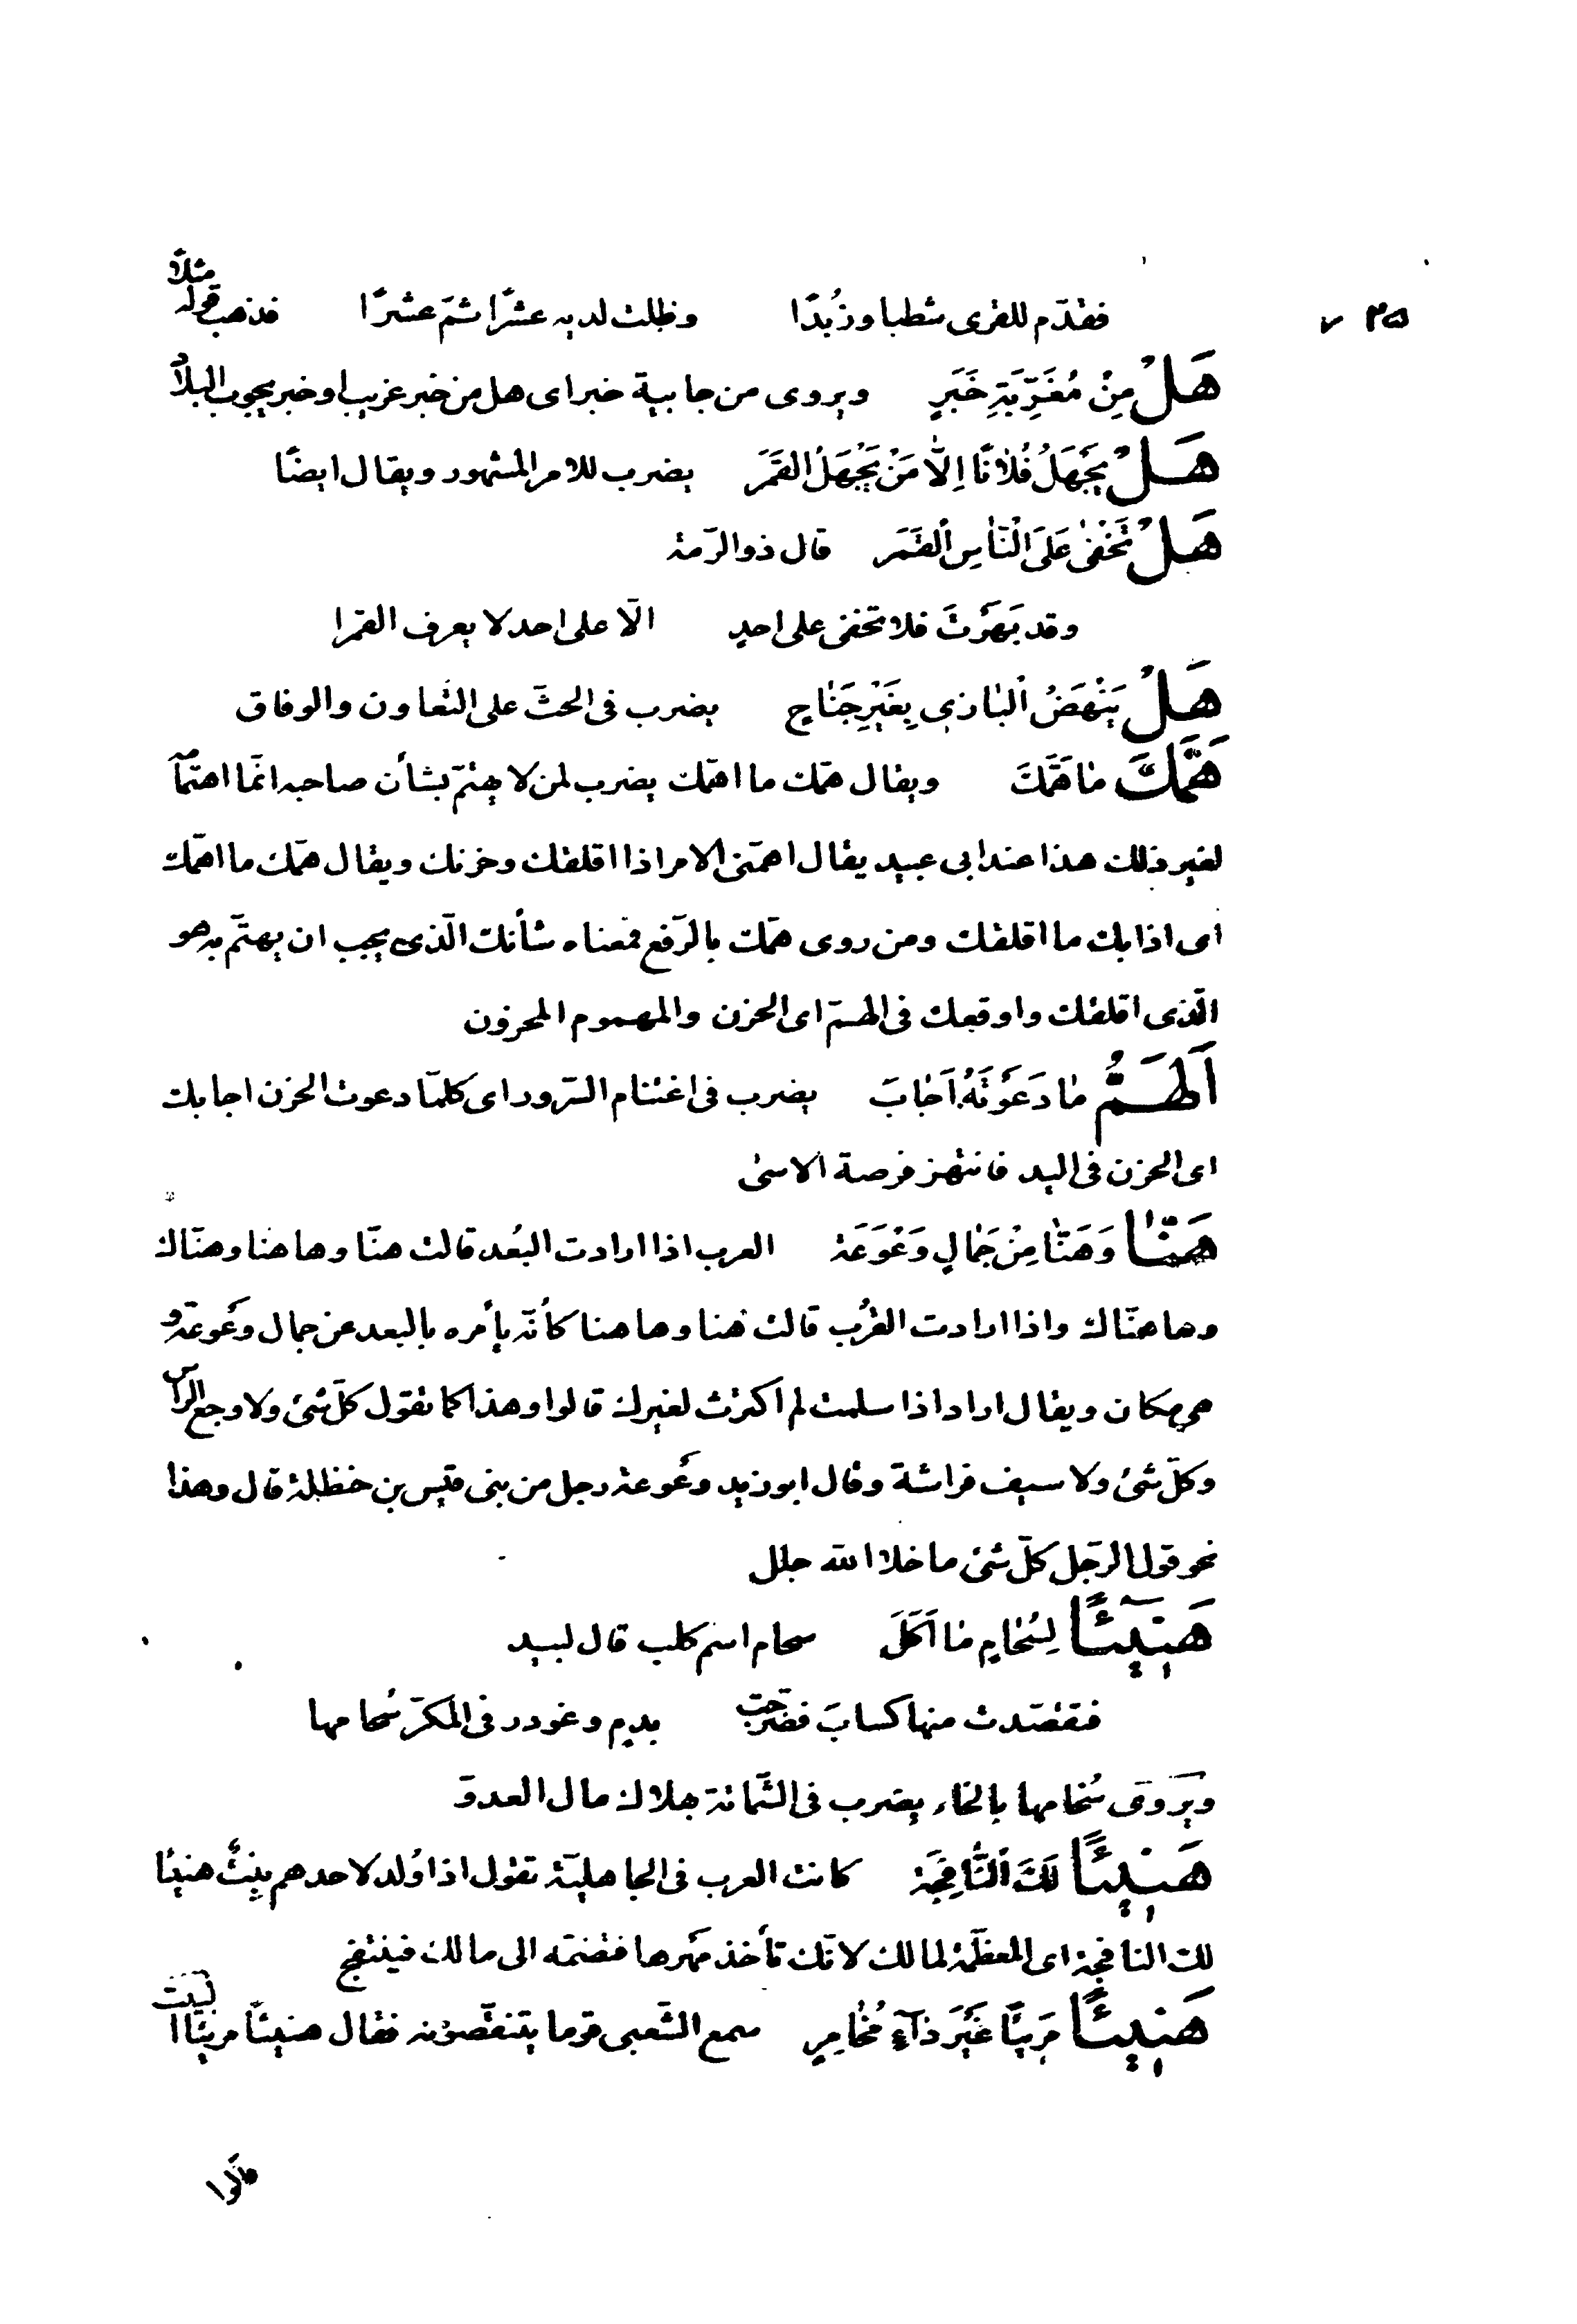 فقدّم للقرى شطبا وزُبدًا وظلت لديه عشرًا ثمّ عشرًا فذهب قوله مثلاً
هَلْ مِنْ مُغَرِّبَةِ خَبَرٍ ويروى من جايبة خبر اى هل من خبر غريب او خبر يجوب البلاد
هَلْ يَجْهَلُ فُلاٰنًا اِلاّٰ مَنْ يَجْهَلُ القَمَرَ يضرب للامر المشهور ويقال ايضًا
هَلْ يَخْفىٰ عَلَى النّٰاسِ اْلقَمَر قال ذو الرّمة
وقد بَهَرْتَ فلا تخفى على احدٍ الّا على احد لا يعرف القمرا
هَلْ يَنْهَضُ اْلبٰازي بِغَيْرِ جَنٰاحٍ يضرب فى الحثّ على التّعاون والوفاق
هَمُّكَ مٰا هَمَّكَ ويقال همّك ما اهمّك يضرب لمن لا يهتمّ بشأن صاحبه انّما اهتمامه
لغير ذلك هذا عند ابى عبيد يقال اهمّنى الامر اذا اقلقك وحزنك ويقال همّك ما اهمّك
اى اذابك ما اقلقك ومن روى همّك بالرّفع فمعناه شأنك الّذى يجب ان يهتمّ به هو
الّذى اقلقك واوقعك فى الهمّ اى الحزن والمهموم المحزون
اَلْهَمُّ مٰا دَعَوْتَهُ اَجٰابَ يضرب فى اغتنام السّرور اى كلّما دعوت الحزن اجابك
اى الحزن فى اليد فانتهز فرصة الاسىٰ
هَنّٰا وَهَنّٰا مِنْ جَمٰالِ وَعْوَعَة العرب اذا ارادت البُعد قالت هنّا وهاهنا وهنّاك
وهاهنّاك واذا ارادت القُرب قالت هنا وهاهنا كأنّه يأمره بالبعد عن جمال وعْوعة و
هى مكان ويقال اراد اذا سلمت لم اكترث لغيرك قالوا وهذا كما تقول كلّ شئ ولا وجع الرّاس
وكلّ شئ ولا سيف فراشة وقال ابوزيد وعْوعة رجل من بنى قيس بن حنظلة قال وهذا
نحو قول الرّجل كلّ شئ ما خلا الله جلل
هَنيٓئًا لِسُحٰامٍ مٰا اَكَلَ سحام اسم كلب قال لبيد
فتقصّدت منها كسابَ فضرّجت بدمٍ وغودر فى المكرّ سُحامها
ويَروى سُخامها بالخاء يضرب فى الشّماتة بهلاك مال العدوّ
هَنيئًا لَكَ النّٰافِجَة كانت العرب فى الجاهليّة تقول اذا وُلد لاحدهم بِنتٌ هنيئا
لك النافجة اى المعظّمة لمالك لانّك تأخذ مَهْرها فتضمّه الى مالك فينتفج
هَنيئًا مَريئًا غَيْرَ دٰآءٍ مُخٰامِرٍ سمع الشّعبى قوما يتنقّصونه فقال هنيئًا مريئًا البيت